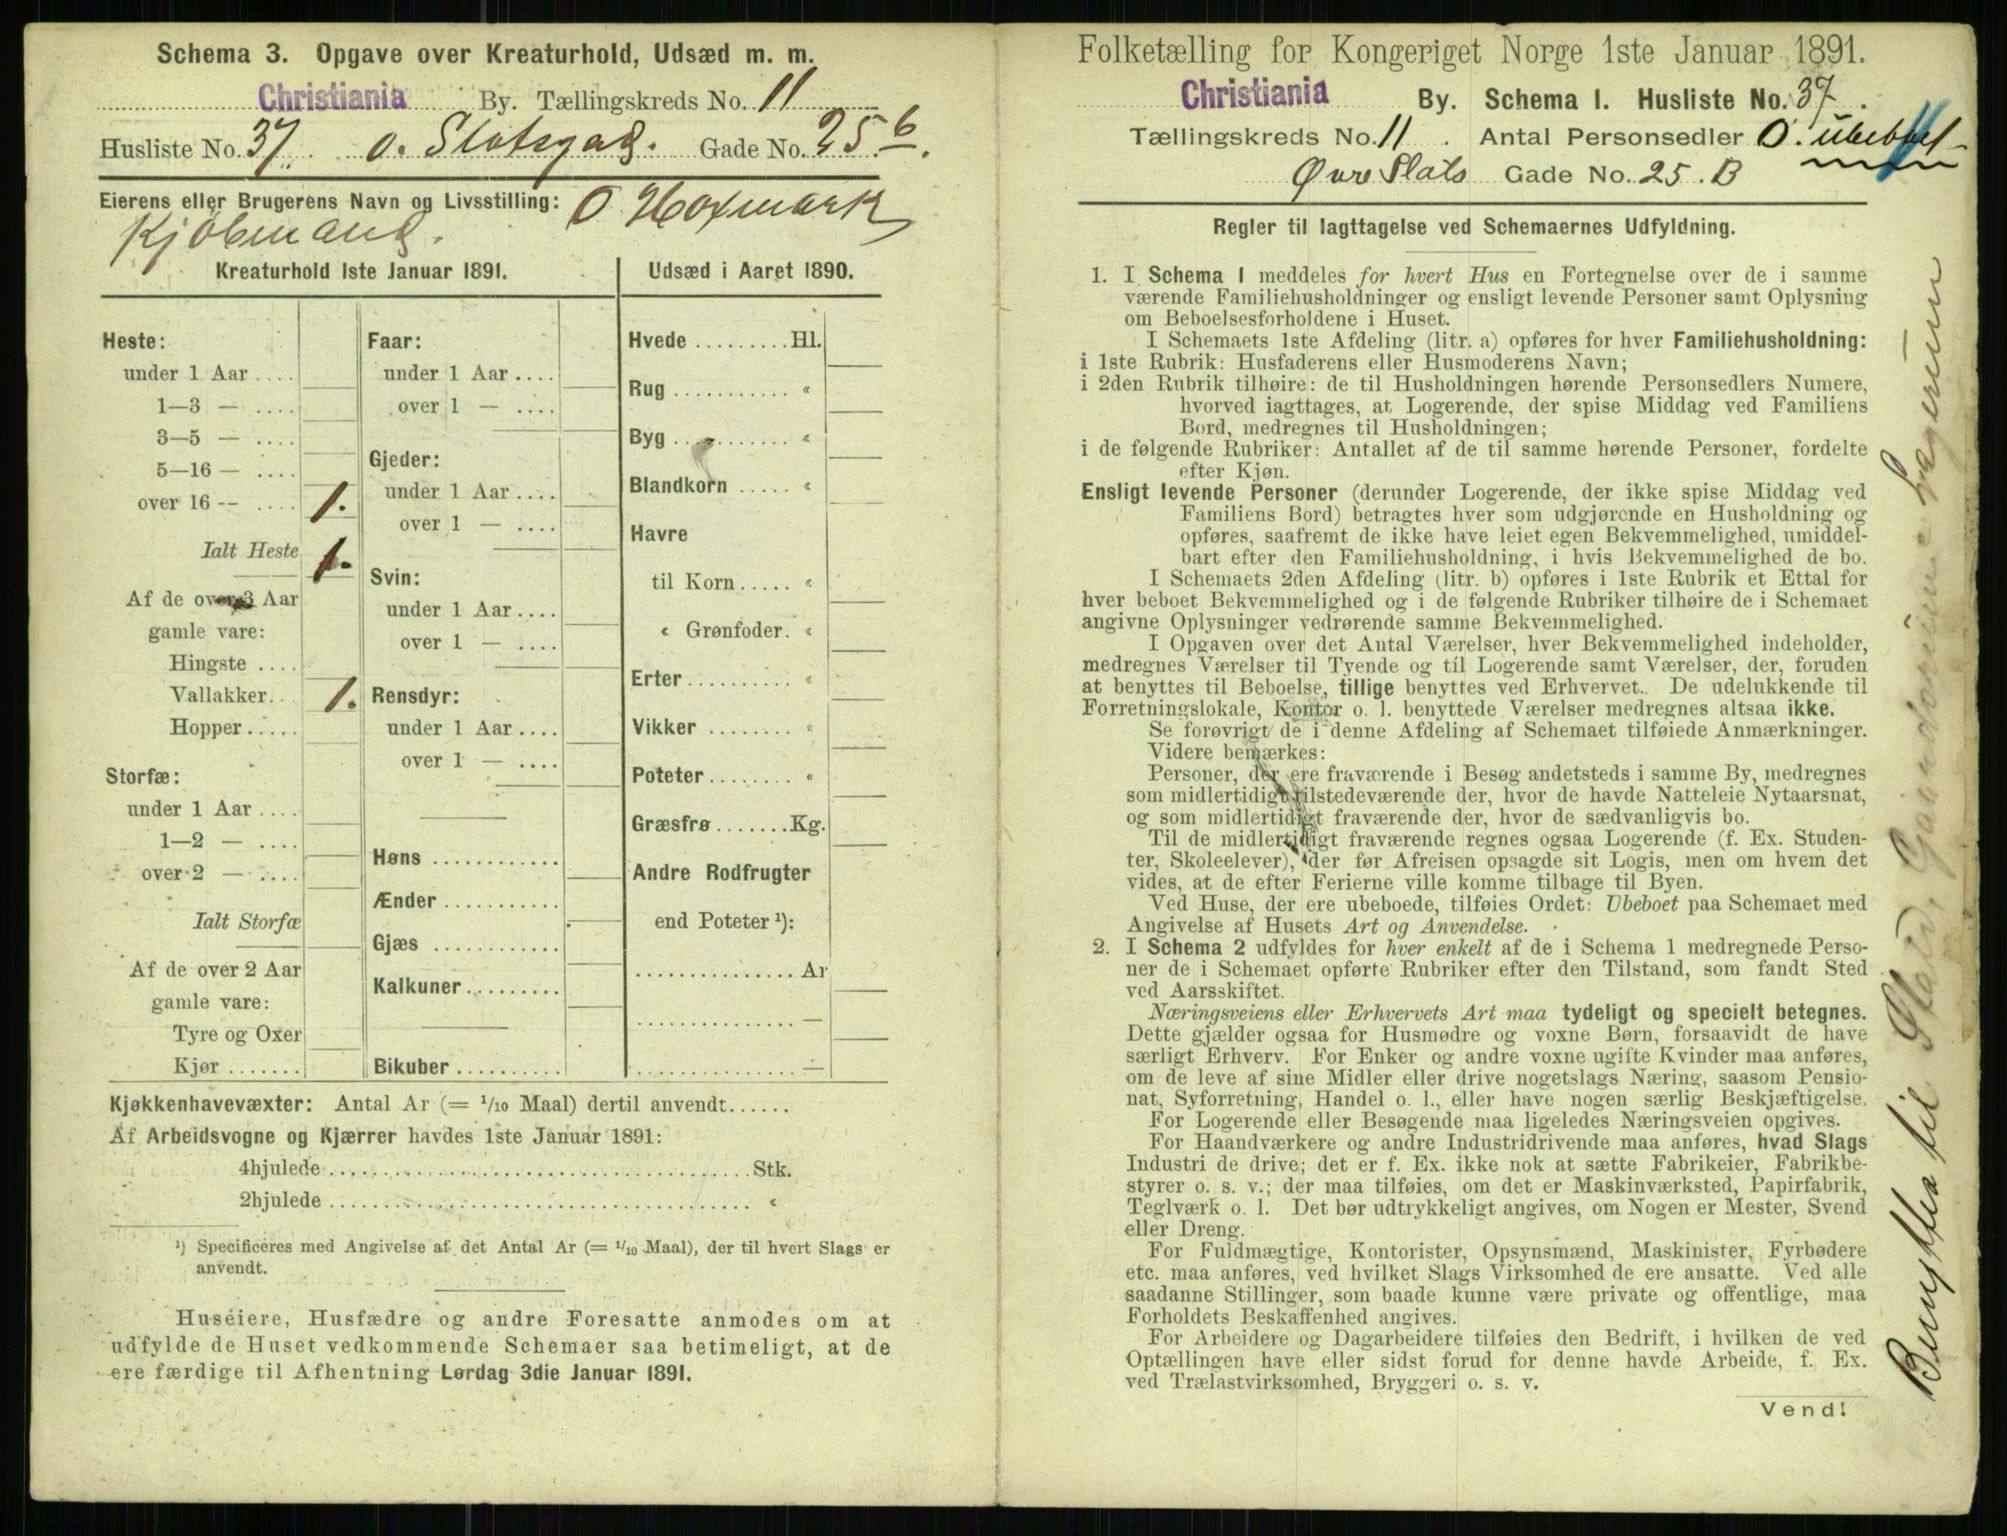 Schema 3. Opgave over Kreaturhold, Udsæd m. m.
Christiania By. Tællingskreds No. 11
Husliste No. 37 o. Slotsgad. Gade No. 25 b.
Eierens eller Brugerens Navn og Livsstilling: O Hoxmark
Kjøbmand.
Kreaturhold 1ste Januar 1891.
Heste:
under 1 Aar ....
1—3 — ....
3—5 — ....
5—16 — ....
over 16 -- .... 1.
Ialt Heste 1.
Af de over 3 Aar
gamle vare:
Hingste ....
Vallakker.. 1.
Hopper.....
Storfæ:
under 1 Aar ....
1—2 — ....
over 2 — ....
Ialt Storfæ
Af de over 2 Aar
gamle vare:
Tyre og Oxer
Kjør .......
Faar:
under 1 Aar ....
over 1 — ....
Gjeder:
under 1 Aar ....
over 1 — ....
Svin:
under 1 Aar ....
over 1 — ....
Rensdyr:
under 1 Aar ....
over 1 — ....
Høns ............
Ænder ...........
Gjæs ............
Kalkuner.........
Bikuber ..........
Udsæd i Aaret 1890.
Hvede .........Hl.
Rug ........... «
Byg ........... «
Blandkorn ..... «
Havre
til Korn ..... «
« Grønfoder. «
Erter.......... «
Vikker ........ «
Poteter........ «
Græsfrø.......Kg.
Andre Rodfrugter
end Poteter ¹):
............... Ar
............... —
............... —
Kjøkkenhavevæxter: Antal Ar (= 1/10 Maal) dertil anvendt......
Af Arbeidsvogne og Kjærrer havdes 1ste Januar 1891:
4hjulede ........................................ Stk.
2hjulede ........................................ «
¹) Specificeres med Angivelse af det Antal Ar (= 1/10 Maal), der til hvert Slags er
anvendt.
Huseiere, Husfædre og andre Foresatte anmodes om at
udfylde de Huset vedkommende Schemaer saa betimeligt, at de
ere færdige til Afhentning Lørdag 3die Januar 1891.
Folketælling for Kongeriget Norge 1ste Januar 1891.
Christiania By. Schema 1. Husliste No. 37.
Tællingskreds No. 11. Antal Personsedler O. ubeboet
Øvre Slots Gade No. 25. B
Regler til Iagttagelse ved Schemaernes Udfyldning.
1. I Schema 1 meddeles for hvert Hus en Fortegnelse over de i samme
værende Familiehusholdninger og ensligt levende Personer samt Oplysning
om Beboelsesforholdene i Huset.
I Schemaets 1ste Afdeling (litr. a) opføres for hver Familiehusholdning:
i 1ste Rubrik: Husfaderens eller Husmoderens Navn;
i 2den Rubrik tilhøire: de til Husholdningen hørende Personsedlers Numere,
hvorved iagttages, at Logerende, der spise Middag ved Familiens
Bord, medregnes til Husholdningen;
i de følgende Rubriker: Antallet af de til samme hørende Personer, fordelte
efter Kjøn.
Ensligt levende Personer (derunder Logerende, der ikke spise Middag ved
Familiens Bord) betragtes hver som udgjørende en Husholdning og
opføres, saafremt de ikke have leiet egen Bekvemmelighed, umiddel-
bart efter den Familiehusholdning, i hvis Bekvemmelighed de bo.
I Schemaets 2den Afdeling (litr. b) opføres i 1ste Rubrik et Ettal for
hver beboet Bekvemmelighed og i de følgende Rubriker tilhøire de i Schemaet
angivne Oplysninger vedrørende samme Bekvemmelighed.
I Opgaven over det Antal Værelser, hver Bekvemmelighed indeholder,
medregnes Værelser til Tyende og til Logerende samt Værelser, der, foruden
at benyttes til Beboelse, tillige benyttes ved Erhvervet. De udelukkende til
Forretningslokale, Kontor o. l. benyttede Værelser medregnes altsaa ikke.
Se forøvrigt de i denne Afdeling af Schemaet tilføiede Anmærkninger.
Videre bemærkes:
Personer, der ere fraværende i Besøg andetsteds i samme By, medregnes
som midlertidigt tilstedeværende der, hvor de havde Natteleie Nytaarsnat,
og som midlertidigt fraværende der, hvor de sædvanligvis bo.
Til de midlertidigt fraværende regnes ogsaa Logerende (f. Ex. Studen-
ter, Skoleelever), der før Afreisen opsagde sit Logis, men om hvem det
vides, at de efter Ferierne ville komme tilbage til Byen.
Ved Huse, der ere ubeboede, tilføies Ordet: Ubeboet paa Schemaet med
Angivelse af Husets Art og Anvendelse.
2. I Schema 2 udfyldes for hver enkelt af de i Schema 1 medregnede Perso-
ner de i Schemaet opførte Rubriker efter den Tilstand, som fandt Sted
ved Aarsskiftet.
Næringsveiens eller Erhvervets Art maa tydeligt og specielt betegnes.
Dette gjælder ogsaa for Husmødre og voxne Børn, forsaavidt de have
særligt Erhverv. For Enker og andre voxne ugifte Kvinder maa anføres,
om de leve af sine Midler eller drive nogetslags Næring, saasom Pensio-
nat, Syforretning, Handel o. l., eller have nogen særlig Beskjæftigelse.
For Logerende eller Besøgende maa ligeledes Næringsveien opgives.
For Haandværkere og andre Industridrivende maa anføres, hvad Slags
Industri de drive; det er f. Ex. ikke nok at sætte Fabrikeier, Fabrikbe-
styrer o. s. v.; der maa tilføies, om det er Maskinværksted, Papirfabrik,
Teglværk o. l. Det bør udtrykkeligt angives, om Nogen er Mester, Svend
eller Dreng.
For Fuldmægtige, Kontorister, Opsynsmænd, Maskinister, Fyrbødere
etc. maa anføres, ved hvilket Slags Virksomhed de ere ansatte. Ved alle
saadanne Stillinger, som baade kunne være private og offentlige, maa
Forholdets Beskaffenhed angives.
For Arbeidere og Dagarbeidere tilføies den Bedrift, i hvilken de ved
Optællingen have eller sidst forud for denne havde Arbeide, f. Ex.
ved Trælastvirksomhed, Bryggeri o. s. v.
Vend!
Benyttes til Stald, Gaardsrum Lagerrum